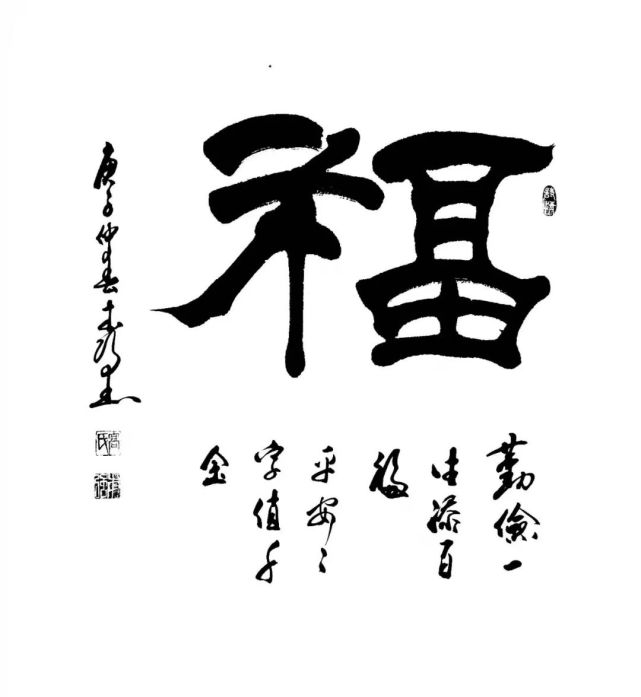 福
勤儉一
生添百
福
平安二
字值千
金
庚子仲春書
高氏